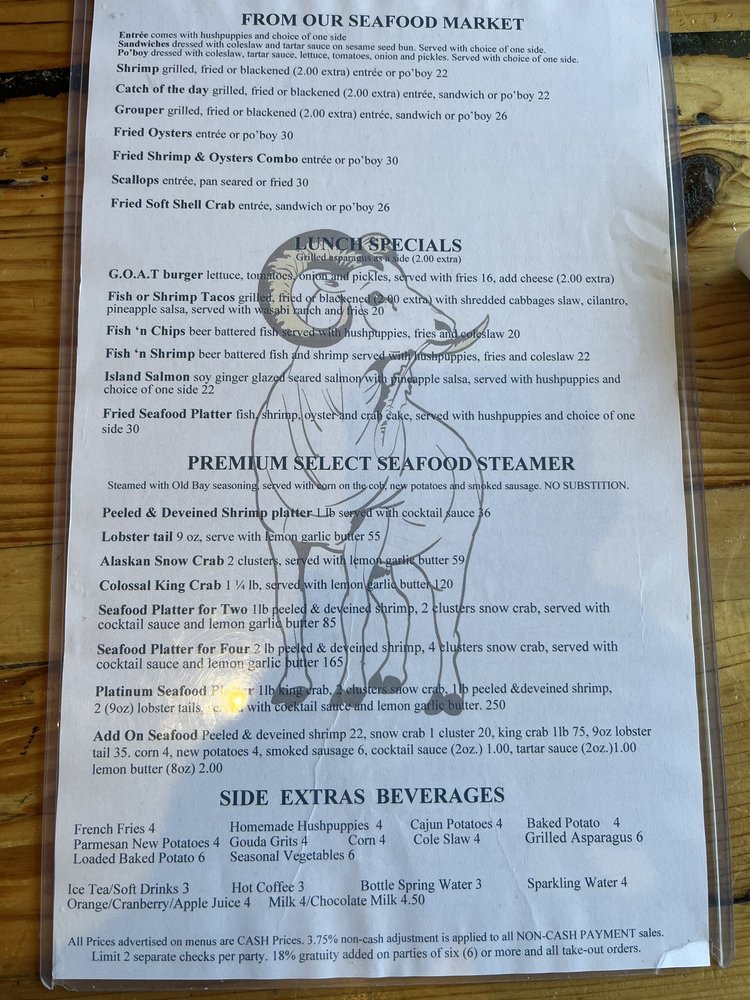 FROM OUR SEAFOOD MARKET
Entrée comes with hushpuppies and choice of one side
Sandwiches dressed with coleslaw and tartar sauce on sesame seed bun. Served with choice of one side.
Po'boy dressed with coleslaw, tartar sauce, lettuce, tomatoes, onion and pickles. Served with choice of one side.
Shrimp grilled, fried or blackened (2.00 extra) entrée or po'boy 22
Catch of the day grilled, fried or blackened (2.00 extra) entrée, sandwich or po'boy 22
Grouper grilled, fried or blackened (2.00 extra) entrée, sandwich or po'boy 26
Fried Oysters entrée or po'boy 30
Fried Shrimp & Oysters Combo entrée or po'boy 30
Scallops entrée, pan seared or fried 30
Fried Soft Shell Crab entrée, sandwich or po'boy 26
LUNCH SPECIALS
Grilled asparagus as a side (2.00 extra)
G.O.A.T burger lettuce, tomatoes, onion and pickles, served with fries 16, add cheese (2.00 extra)
Fish or Shrimp Tacos grilled, fried or blackened (2.00 extra) with shredded cabbages slaw, cilantro,
pineapple salsa, served with wasabi ranch and fries 20
Fish 'n Chips beer battered fish served with hushpuppies, fries and coleslaw 20
Fish 'n Shrimp beer battered fish and shrimp served with hushpuppies, fries and coleslaw 22
Island Salmon soy ginger glazed seared salmon with pineapple salsa, served with hushpuppies and
choice of one side 22
Fried Seafood Platter fish, shrimp, oyster and crab cake, served with hushpuppies and choice of one
side 30
PREMIUM SELECT SEAFOOD STEAMER
Steamed with Old Bay seasoning, served with corn on the cob, new potatoes and smoked sausage. NO SUBSTITION.
Peeled & Deveined Shrimp platter 1 lb served with cocktail sauce 36
Lobster tail 9 oz, serve with lemon garlic butter 55
Alaskan Snow Crab 2 clusters, served with lemon garlic butter 59
Colossal King Crab 1 ¼ lb, served with lemon garlic butter 120
Seafood Platter for Two 1lb peeled & deveined shrimp, 2 clusters snow crab, served with
cocktail sauce and lemon garlic butter 85
Seafood Platter for Four 2 lb peeled & deveined shrimp, 4 clusters snow crab, served with
cocktail sauce and lemon garlic butter 165
Platinum Seafood 1lb king crab, 2 clusters snow crab, 1lb peeled &deveined shrimp,
2 (9oz) lobster tails, with cocktail sauce and lemon garlic butter. 250
Add On Seafood Peeled & deveined shrimp 22, snow crab 1 cluster 20, king crab 1lb 75, 9oz lobster
tail 35. corn 4, new potatoes 4, smoked sausage 6, cocktail sauce (2oz.) 1.00, tartar sauce (2oz.)1.00
lemon butter (8oz) 2.00
SIDE EXTRAS BEVERAGES
French Fries 4 Homemade Hushpuppies 4 Cajun Potatoes 4 Baked Potato 4
Parmesan New Potatoes 4 Gouda Grits 4 Corn 4 Cole Slaw 4 Grilled Asparagus 6
Loaded Baked Potato 6 Seasonal Vegetables 6
Ice Tea/Soft Drinks 3 Hot Coffee 3 Bottle Spring Water 3 Sparkling Water 4
Orange/Cranberry/Apple Juice 4 Milk 4/Chocolate Milk 4.50
All Prices advertised on menus are CASH Prices. 3.75% non-cash adjustment is applied to all NON-CASH PAYMENT sales.
Limit 2 separate checks per party. 18% gratuity added on parties of six (6) or more and all take-out orders.